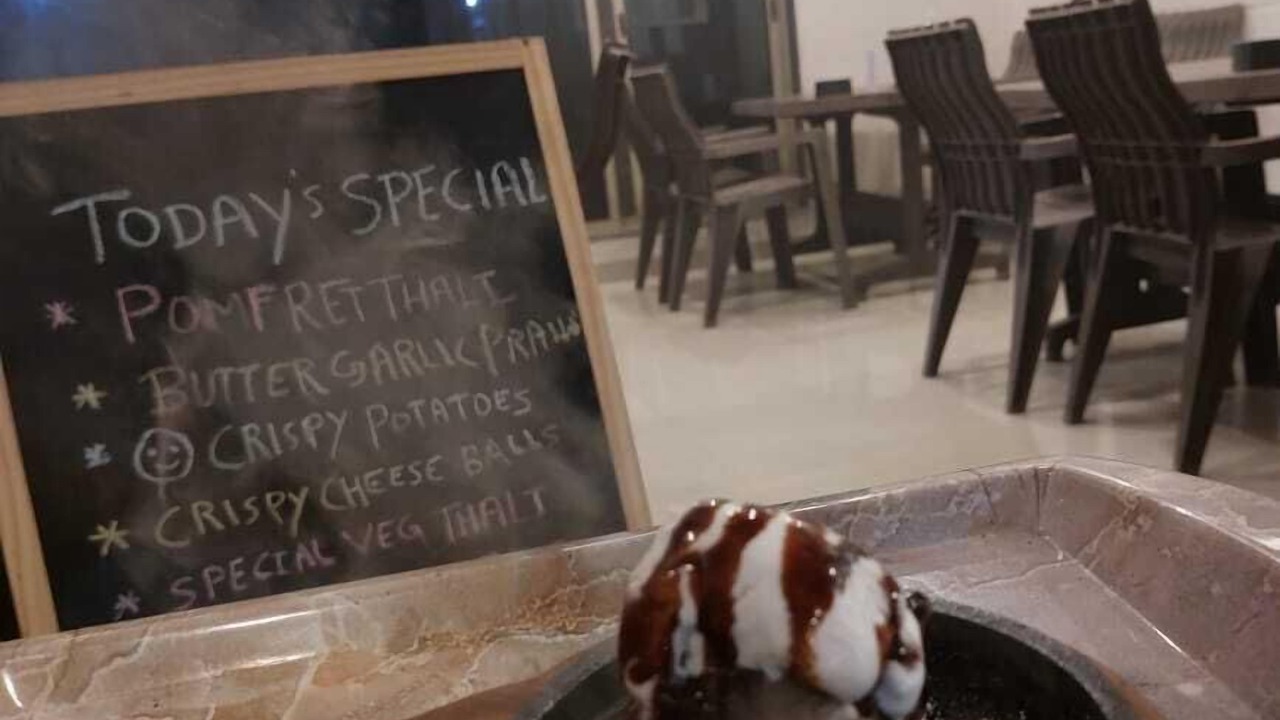 TODAY'S SPECIAL
* POMFRET THALI
* BUTTER GARLIC PRAWNS
* CRISPY POTATOES
* CRISPY CHEESE BALLS
* SPECIAL VEG THALI